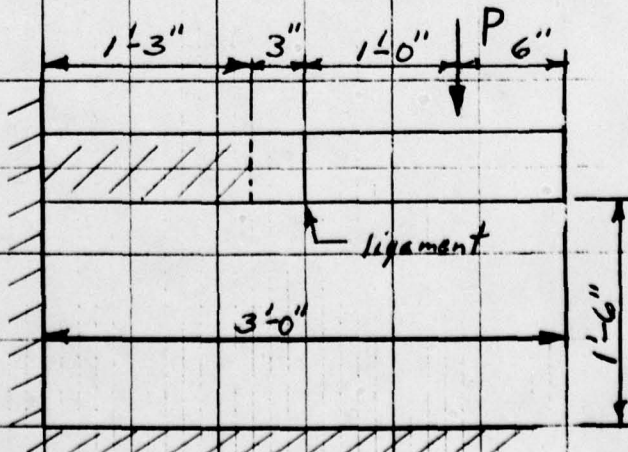 P
1'-3" 3" 1'-0" 6"
ligament
3'-0"
1'-6"